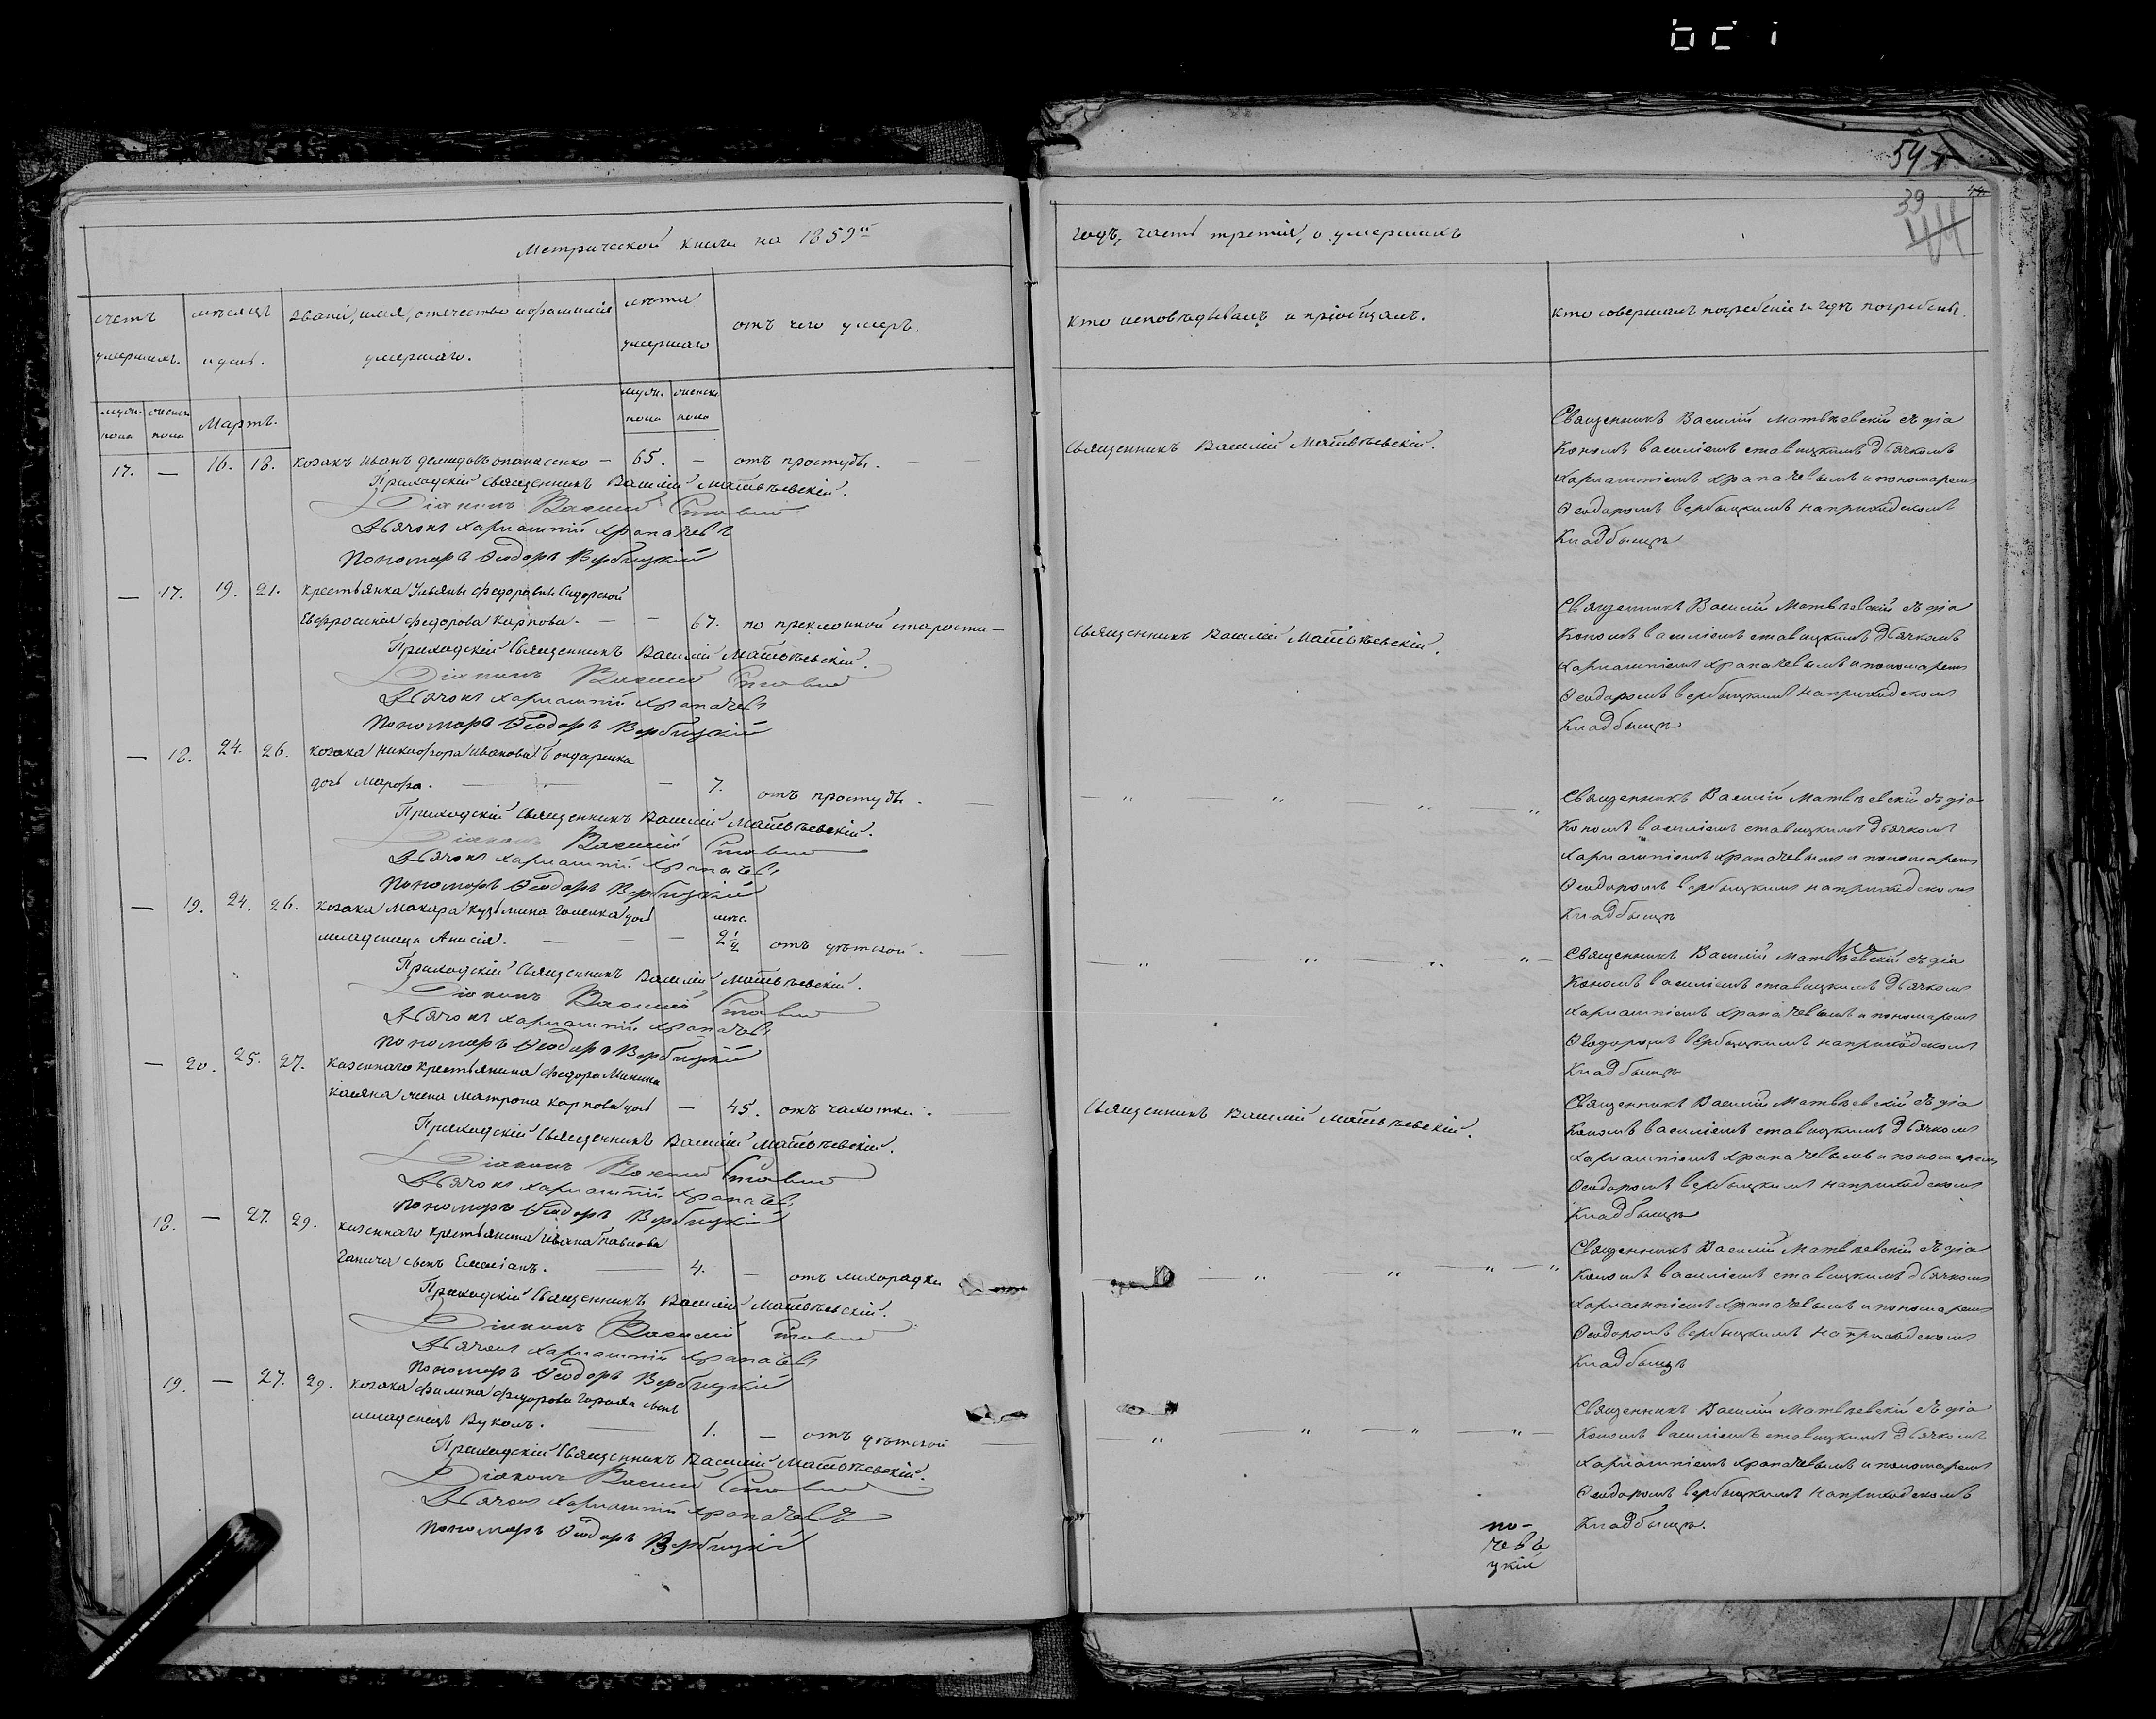 54
39
44
Метрической книги на 1859й
годъ, часть третія, о умершихъ
счетъ умершихъ.
мѣсяцъ и день.
званіе, имя, отчество и фамилія умершаго.
лѣта умершаго
отъ чего умеръ.
кто исповѣдывалъ и пріобщалъ.
кто совершалъ погребеніе и гдѣ погребены.
муж. пола
женск. пола
Мартъ.
муж. пола
женск. пола
17. — 16. 18. козакъ Иванъ Демидовъ Опанасенко — 65. — отъ простуды. —
Приходскій Священникъ Василій Матвѣевскій.
Діаконъ Василій
Дьячокъ Харлампій Храпачевъ
Пономарь Ѳеодоръ Вербицкій
Священникъ Василій Матвѣевскій.
Священникъ Василій Матвѣевскій съ діа
кономъ Василіемъ Ставицкимъ Дьячкомъ
Харлампіемъ Храпачевымъ и пономаремъ
Ѳеодоромъ Вербицкимъ на приходскомъ
Кладбищѣ
— 17. 19. 21. крестьянка Ульяны Федоровны
Евфросинія Федорова Карпова. — — 67. по преклонной старости —
Приходскій Священникъ Василій Матвѣевскій.
Діаконъ Василій
Дьячокъ Харлампій Храпачевъ
Пономарь Ѳеодоръ Вербицкій
Священникъ Василій Матвѣевскій.
Священникъ Василій Матвѣевскій съ діа
кономъ Василіемъ Ставицкимъ Дьячкомъ
Харлампіемъ Храпачевымъ и пономаремъ
Ѳеодоромъ Вербицкимъ на приходскомъ
Кладбищѣ
— 18. 24. 26. козака Никифора Иванова Бондаренка
дочь Марфа. — — 7. отъ простуды. —
Приходскій Священникъ Василій Матвѣевскій.
Діаконъ Василій
Дьячокъ Харлампій Храпачевъ
Пономарь Ѳеодоръ Вербицкій
— " " — " — "
Священникъ Василій Матвѣевскій съ діа
кономъ Василіемъ Ставицкимъ Дьячкомъ
Харлампіемъ Храпачевымъ и пономаремъ
Ѳеодоромъ Вербицкимъ на приходскомъ
Кладбищѣ
— 19. 24. 26. козака Макара Кузьмина дочь мѣс.
младеница Анисія. — — — 2 1/2 отъ дѣтской. —
Приходскій Священникъ Василій Матвѣевскій.
Діаконъ Василій
Дьячокъ Харлампій Храпачевъ
Пономарь Ѳеодоръ Вербицкій
— " " — " — " —
Священникъ Василій Матвѣевскій съ діа
кономъ Василіемъ Ставицкимъ Дьячкомъ
Харлампіемъ Храпачевымъ и пономаремъ
Ѳеодоромъ Вербицкимъ на приходскомъ
Кладбищѣ
— 20. 25. 27. казеннаго крестьянина Федора Минина
Касяна жена Матрона Карпова дочь — 45. отъ чахотки. —
Приходскій Священникъ Василій Матвѣевскій.
Діаконъ Василій
Дьячокъ Харлампій Храпачевъ
Пономарь Ѳеодоръ Вербицкій
Священникъ Василій Матвѣевскій.
Священникъ Василій Матвѣевскій съ діа
кономъ Василіемъ Ставицкимъ Дьячкомъ
Харлампіемъ Храпачевымъ и пономаремъ
Ѳеодоромъ Вербицкимъ на приходскомъ
Кладбищѣ
18. — 27. 29. казеннаго крестьянина Ивана Павлова
сынъ Емиліанъ. — 4. — отъ лихорадки
Приходскій Священникъ Василій Матвѣевскій.
Діаконъ Василій
Дьячокъ Харлампій Храпачевъ
Пономарь Ѳеодоръ Вербицкій
— " " — " — "
Священникъ Василій Матвѣевскій съ діа
кономъ Василіемъ Ставицкимъ Дьячкомъ
Харлампіемъ Храпачевымъ и пономаремъ
Ѳеодоромъ Вербицкимъ на приходскомъ
Кладбищѣ
19. — 27. 29. козака Филипа Федорова Гороха сынъ
младенецъ Вуколъ. — 1. — отъ дѣтской —
Приходскій Священникъ Василій Матвѣевскій.
Діаконъ Василій
Дьячокъ Харлампій Храпачевъ
Пономарь Ѳеодоръ Вербицкій
— " " — " — " —
Священникъ Василій Матвѣевскій съ діа
кономъ Василіемъ Ставицкимъ Дьячкомъ
Харлампіемъ Храпачевымъ и пономаремъ
Ѳеодоромъ Вербицкимъ на приходскомъ
Кладбищѣ.
цкій